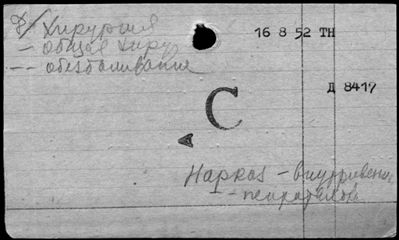 Д/ Хирургия
— общая хиру
—— обезболивание
16 8 52 ТН
Д 8417
С
Наркоз — внутривенн
—— — пентоталов